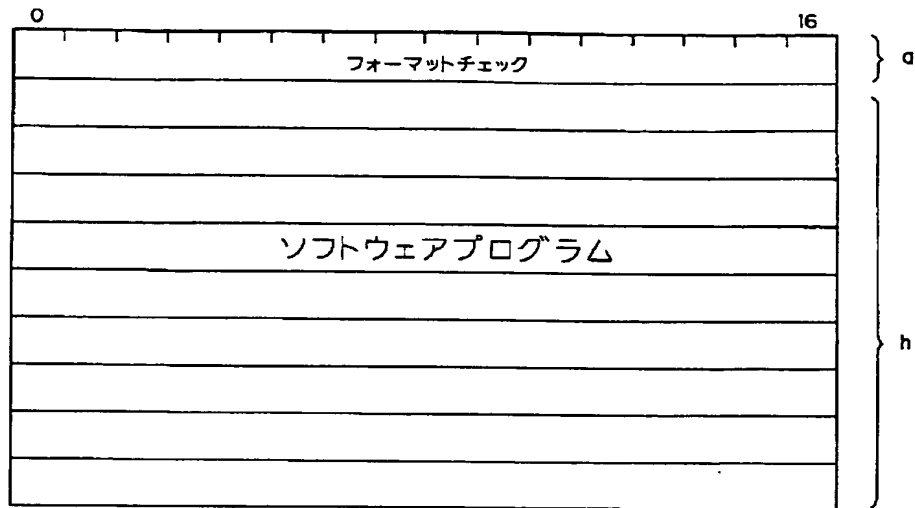 0 16
フォーマットチェック a
ソフトウェアプログラム
h